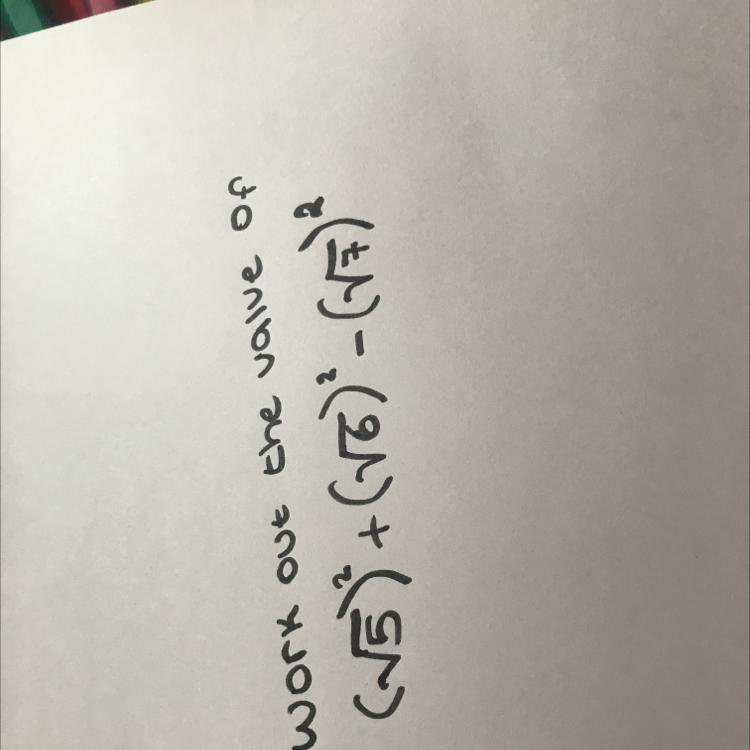 work out the value of
(√5)² + (√6)² - (√7)²